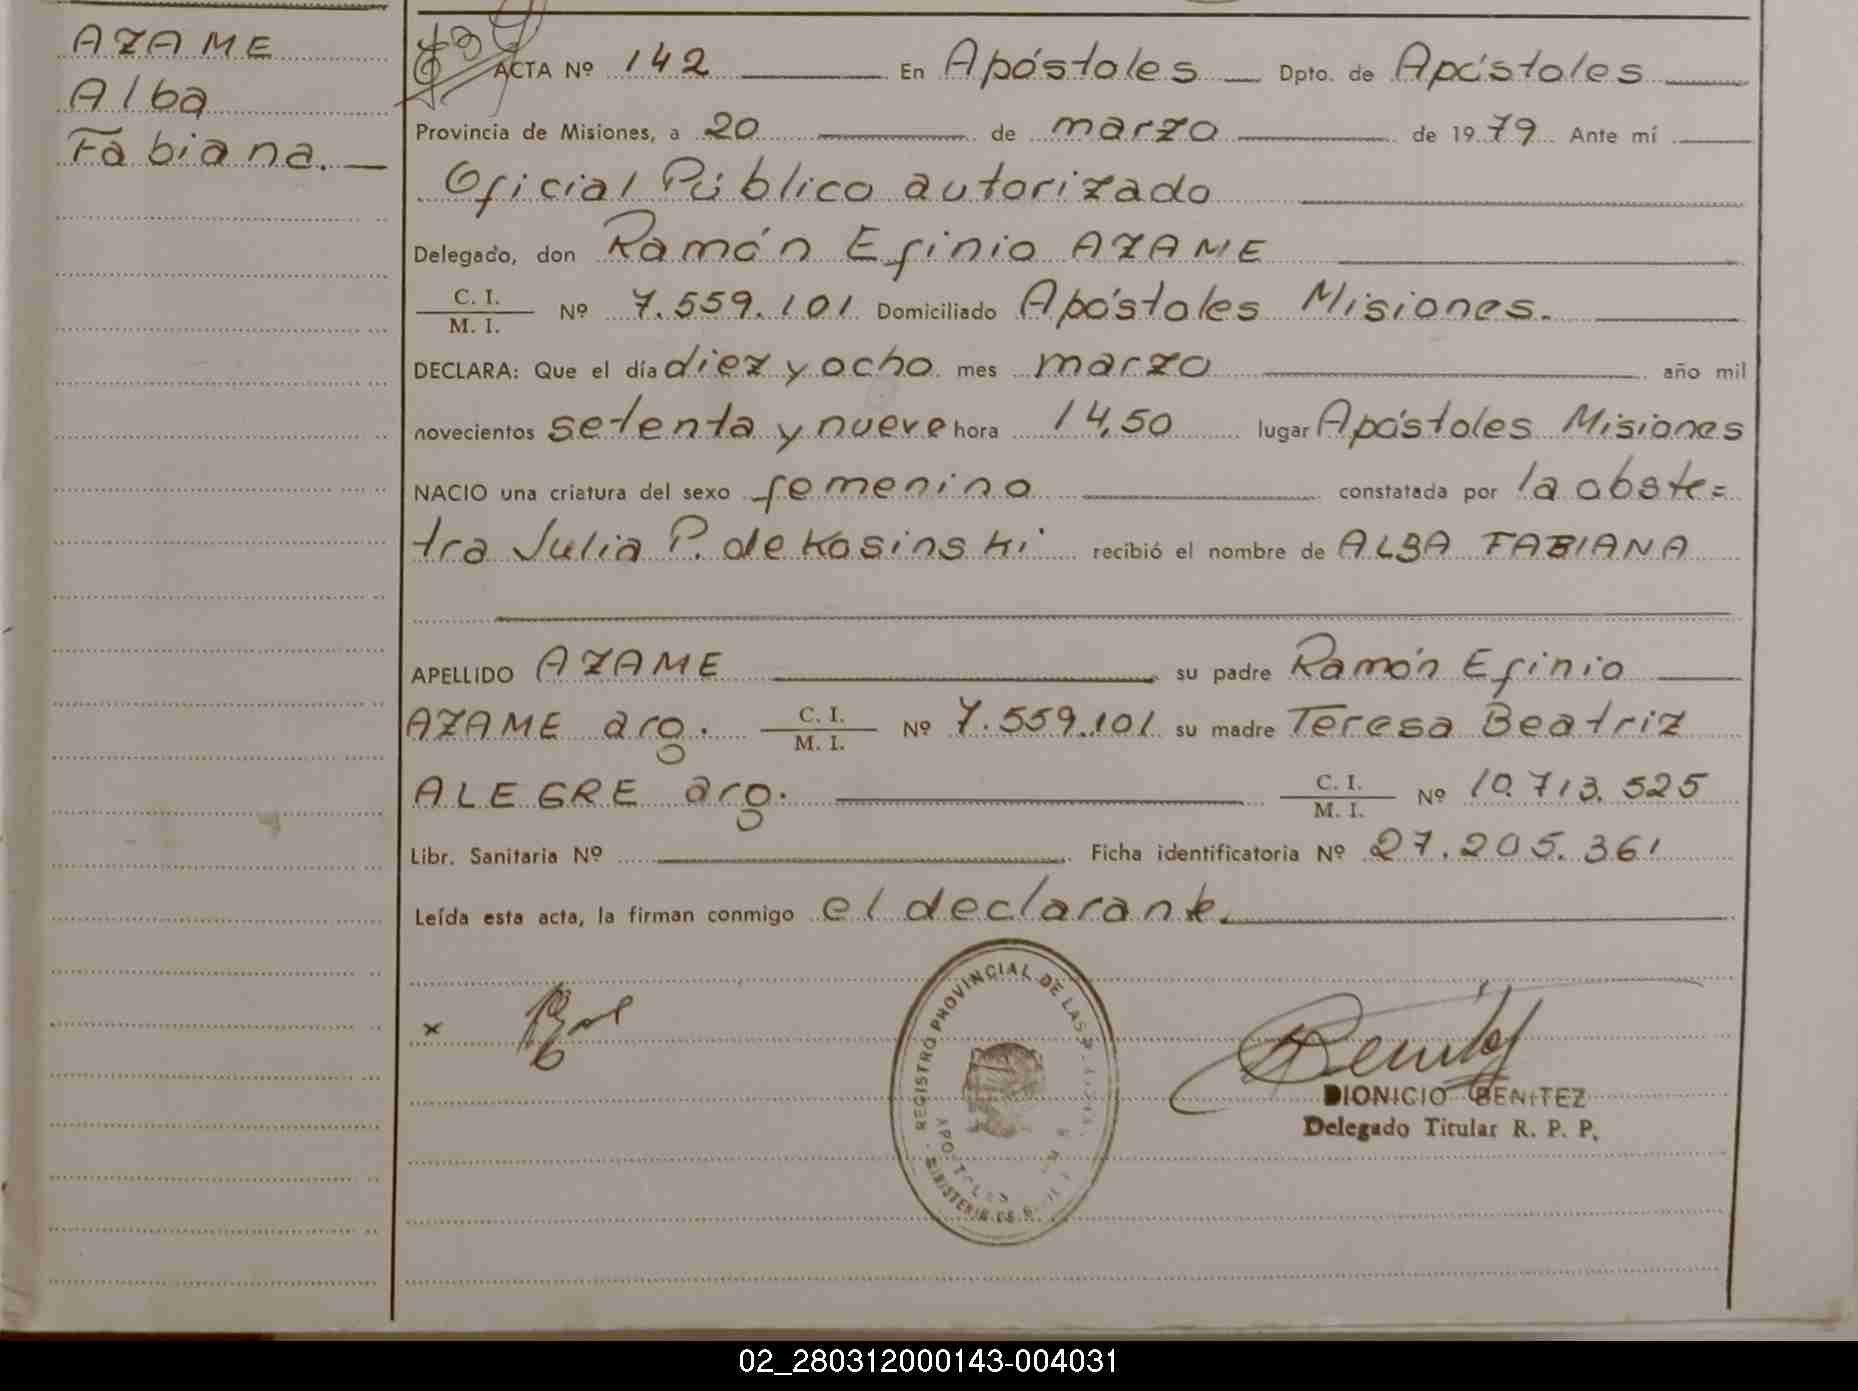 AZAME
Alba
Fabiana.
ACTA Nº 142 En Apóstoles Dpto. de Apóstoles
Provincia de Misiones, a 20 de marzo de 1979 Ante mí
Oficial Público autorizado
Delegado, don Ramón Efinio AZAME
C. I.
M. I.
Nº 7.559.101 Domiciliado Apóstoles Misiones.
DECLARA: Que el día diez y ocho mes marzo año mil
novecientos setenta y nueve hora 14,50 lugar Apóstoles Misiones
NACIO una criatura del sexo femenino constatada por la obste=
tra Julia P. de Kosinski recibió el nombre de ALBA FABIANA
APELLIDO AZAME su padre Ramón Efinio
AZAME arg. C. I. M. I. Nº 7.559.101 su madre Teresa Beatriz
ALEGRE arg. C. I. M. I. Nº 10.713.525
Libr. Sanitaria Nº Ficha identificatoria Nº 27.205.361
Leída esta acta, la firman conmigo el declarante.
x
REGISTRO PROVINCIAL DE LAS
APOSTOLES
DIONICIO BENITEZ
Delegado Titular R. P. P.
02_280312000143-004031